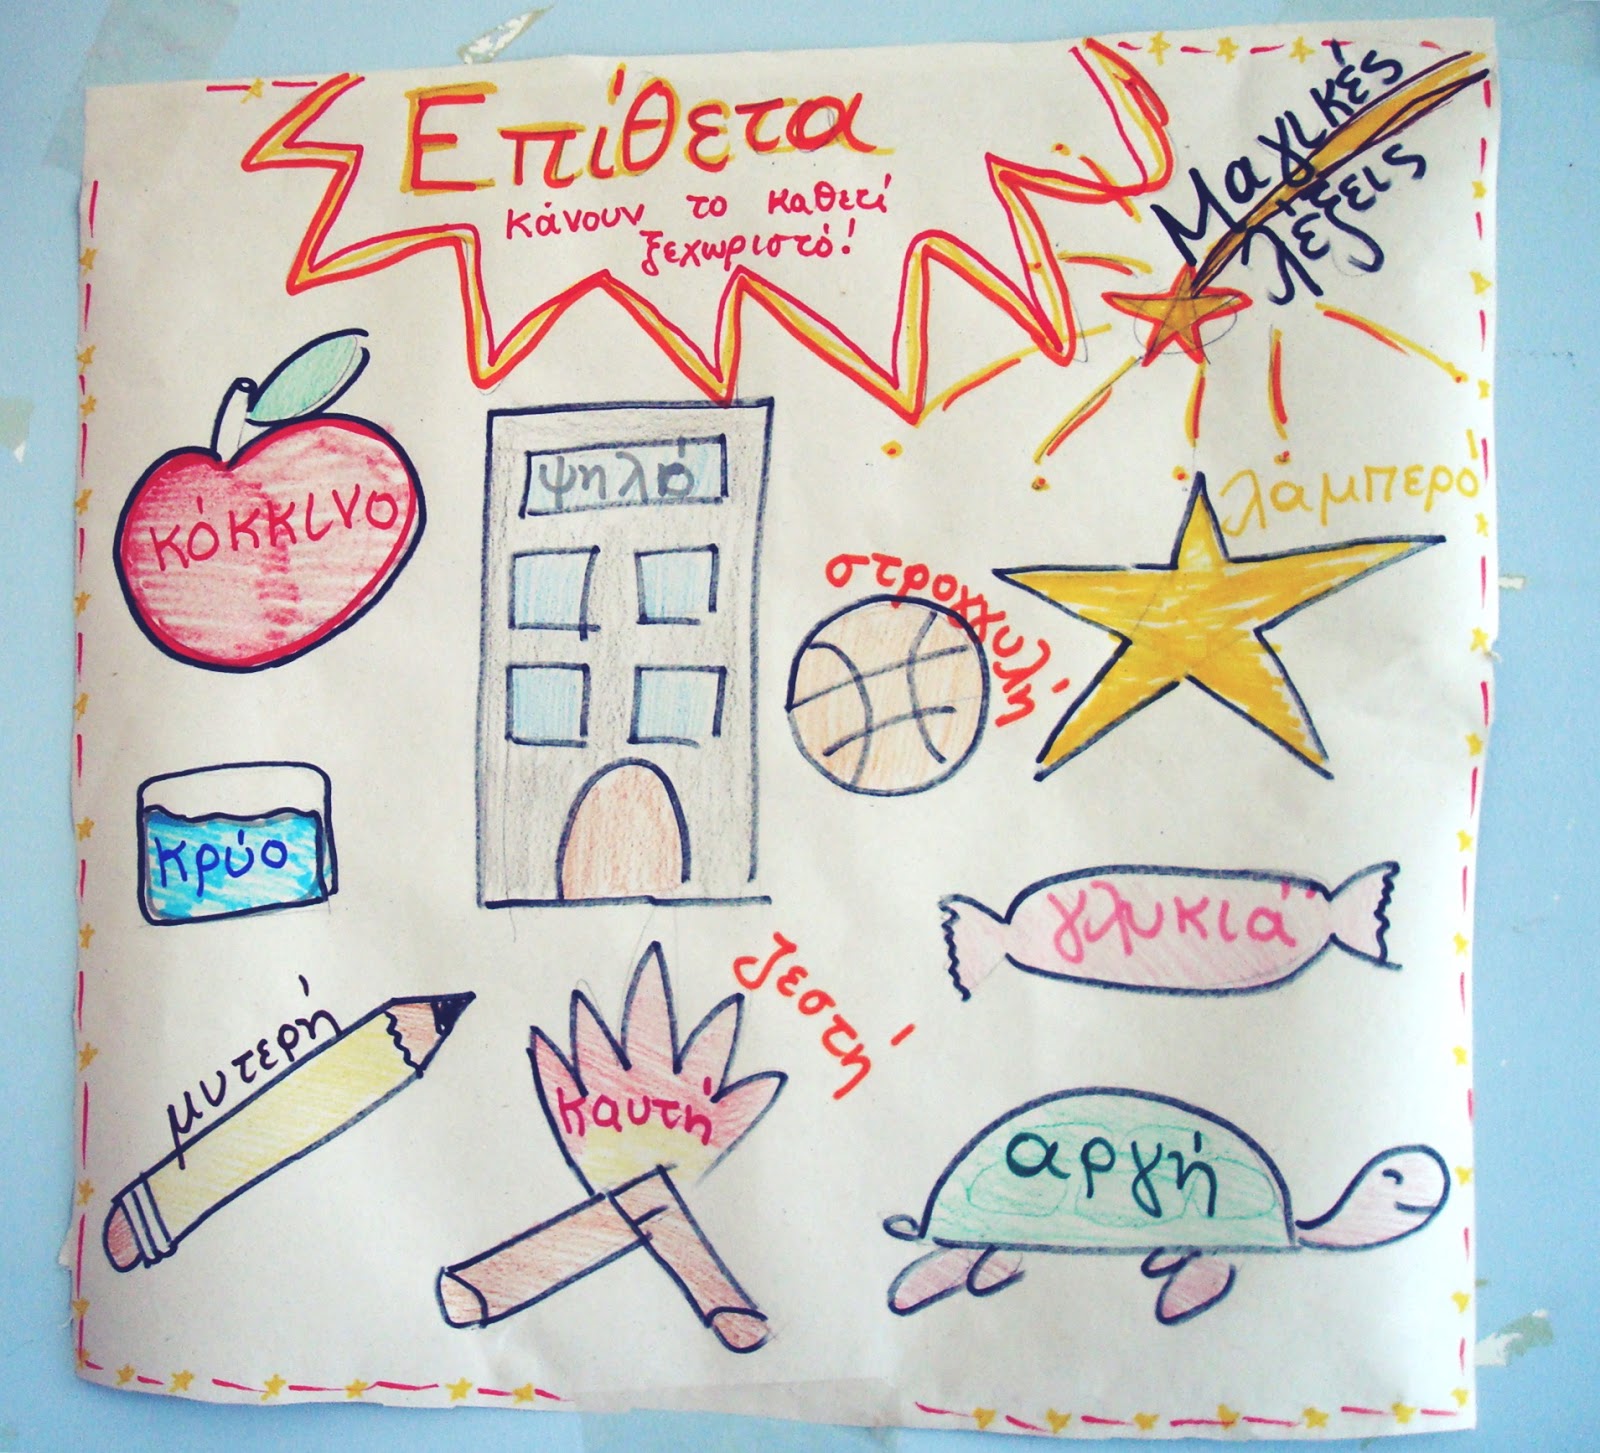 Επίθετα
κάνουν το καθετί
ξεχωριστό!
Μαγικές
λέξεις
κόκκινο
ψηλό
στρογγυλή
λαμπερό
κρύο
γλυκιά
μυτερή
καυτή
ζεστή
αργή